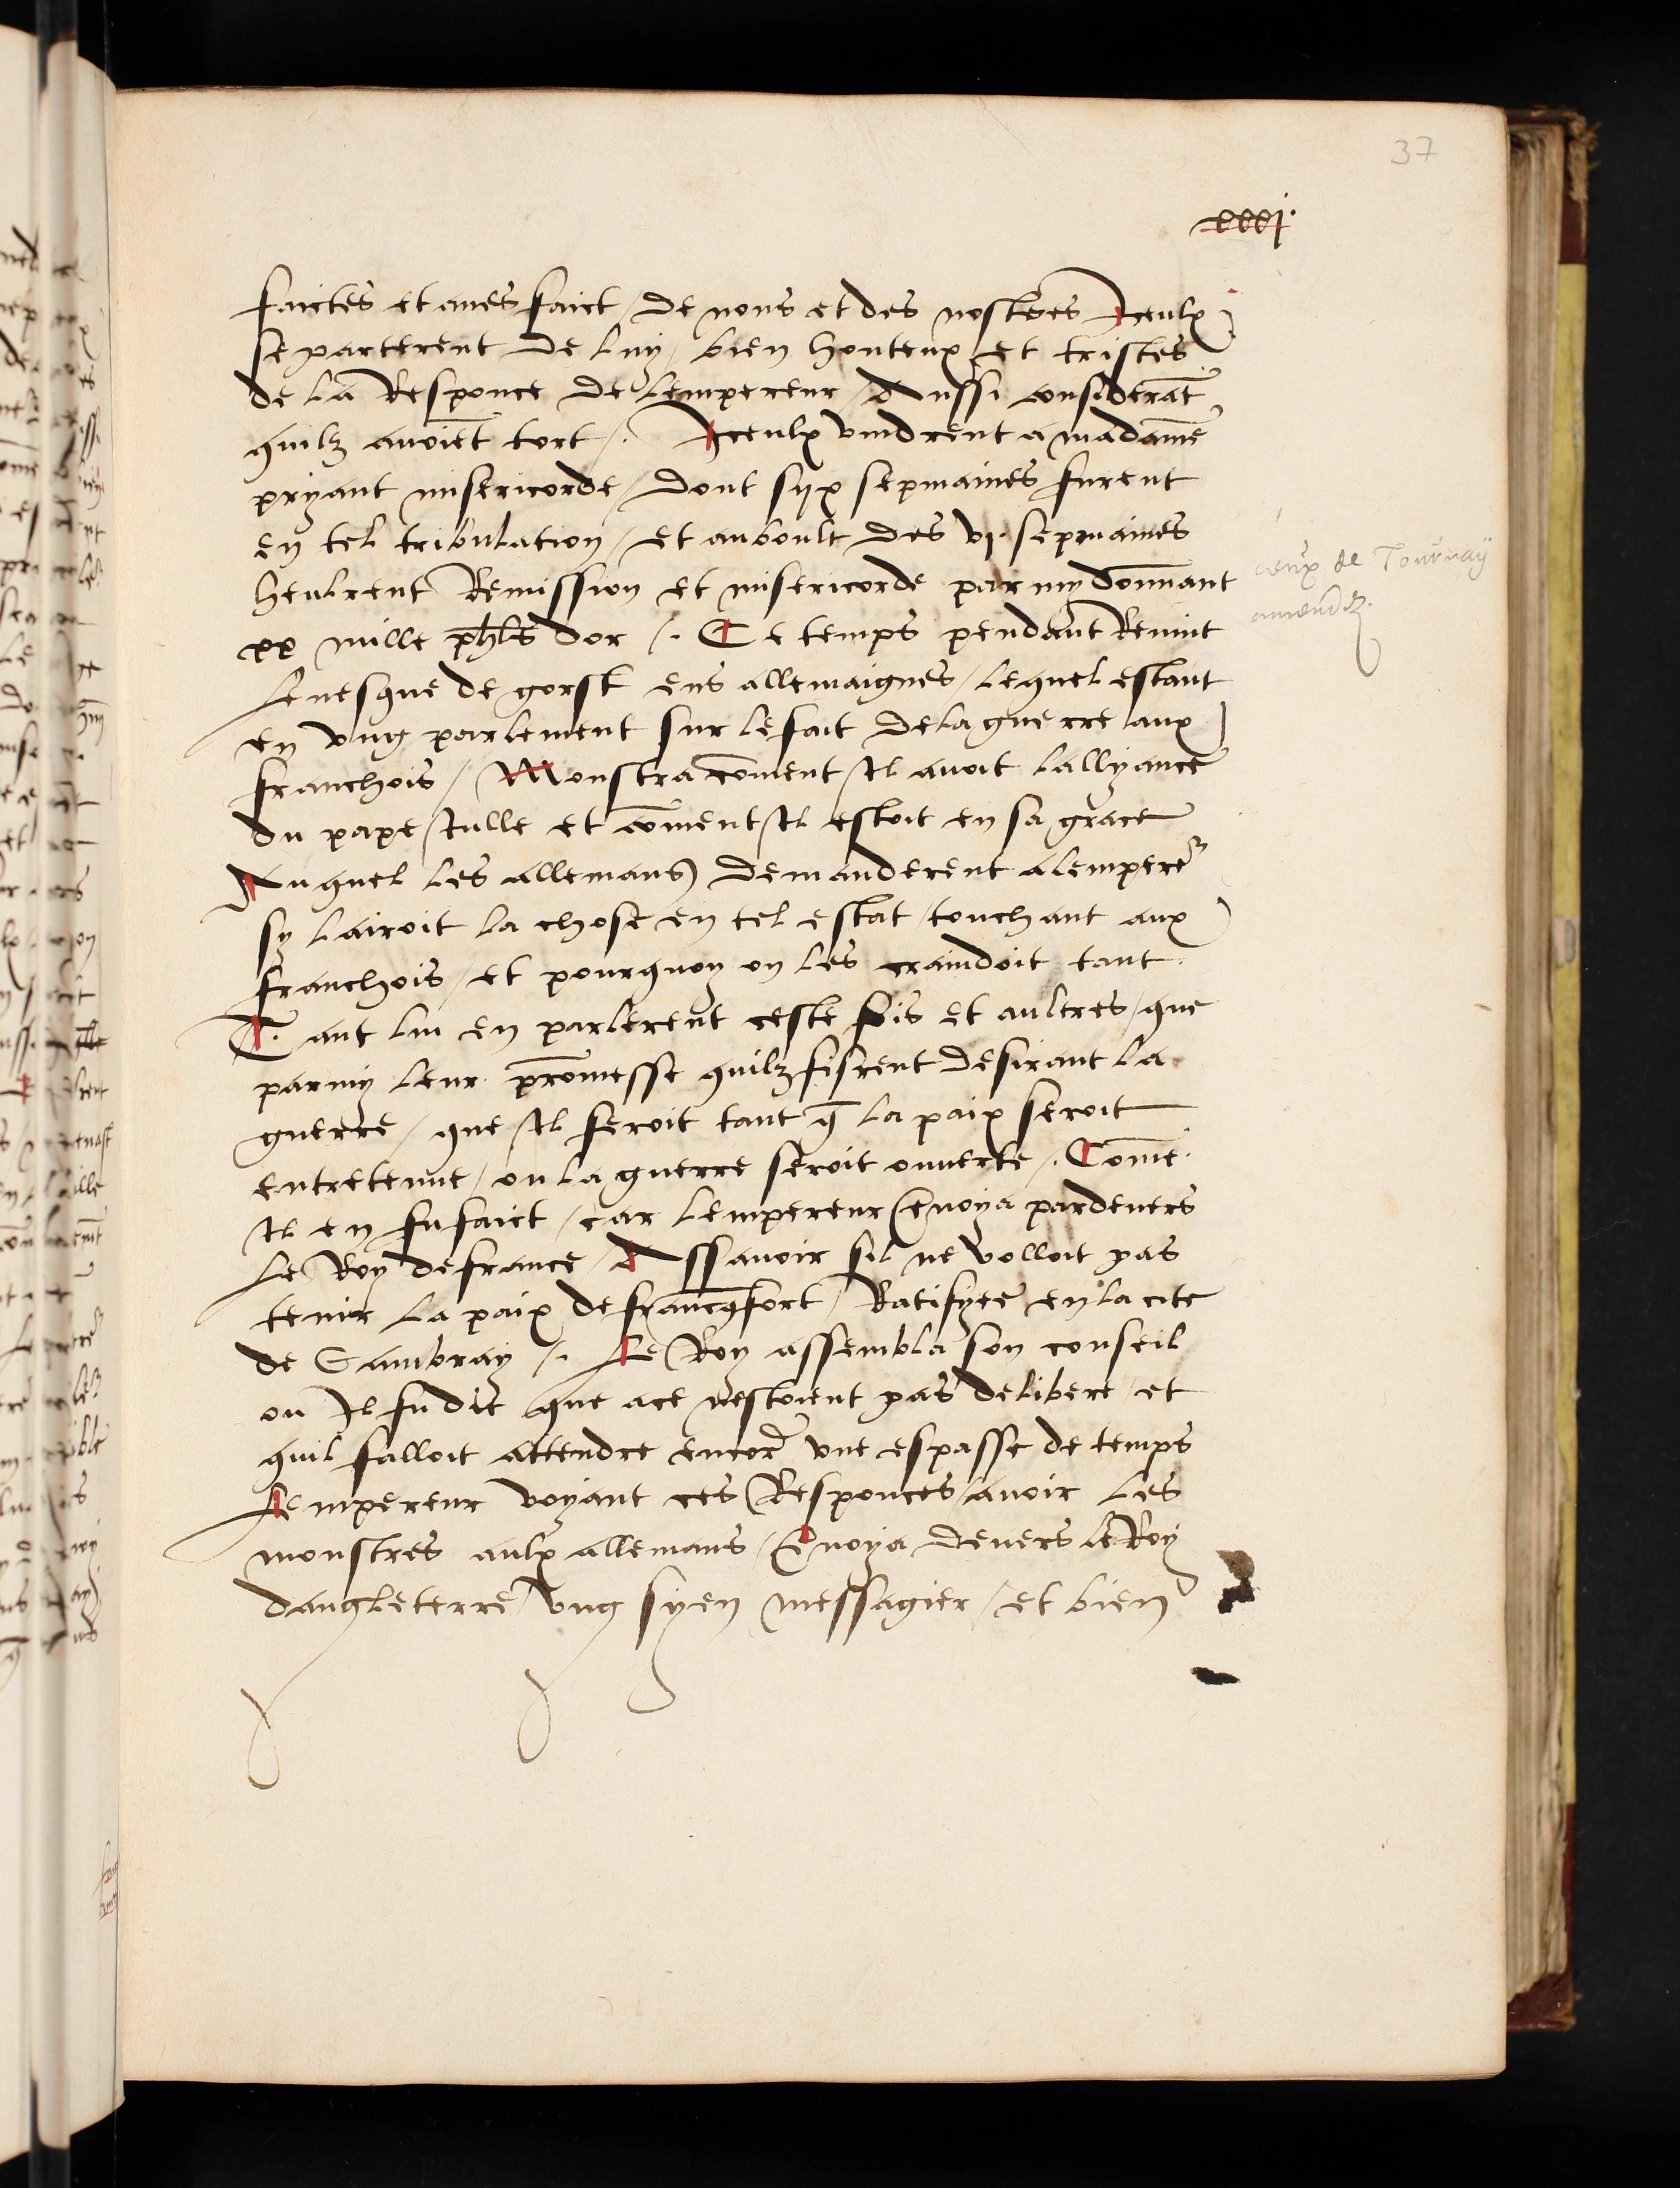 37
xxxj.
faictes et aues faict / de nous et des nostres Iceulx
se parterent de luy / bien honteux et tristes
de la Responce de lempereur / Aussi considerāt
quilz auoiēt tort /. Iceulx vindrent a madamē
pryant misericorde / dont syx sepmaines furent
en tel tribulation / et auboult des vj. sepmaines
heulrent Remission et misericorde parmy donnant
xx mille phls dor /. Ce temps pendant Reuint
leuesque de gorsk ens allemaignes / lequel estant
en vng parlement sur le fait dela guerre aux
franchois / Monstra cōment Il auoit lallyance
du pape Iulle et cōment Il estoit en sa grace
Auquel les allemans demanderent a lemperer
sy lairoit la chose en tel estat / touchant aux
franchois / et pourquoy on les craindoit tant
Tant lui en parlerent ceste fois et aultres / que
parmy leur promesse quilz fisrent desirant la
guerre / que Il feroit tant q̄ la paix seroit
entretenue / ou la guerre seroit ouuerte /. Cōme
Il en fu faict / car lempereur Enuoya pardeuers
le Roy de france / Assauoir sil ne volloit pas
tenir la paix de francqfort / Ratifyee en la cite
de Cambray /. Le Roy assembla son conseil
ou Il fu dit que ace nestoient pas delibere / et
quil falloit attendre encore vne espasse de temps
Lempereur voyant ces Responces / auoir les
monstres aulx allemans / Enuoya deuers le Roy
dangleterre vng syen messagier / et bien
ceux de Tournay
amendez.